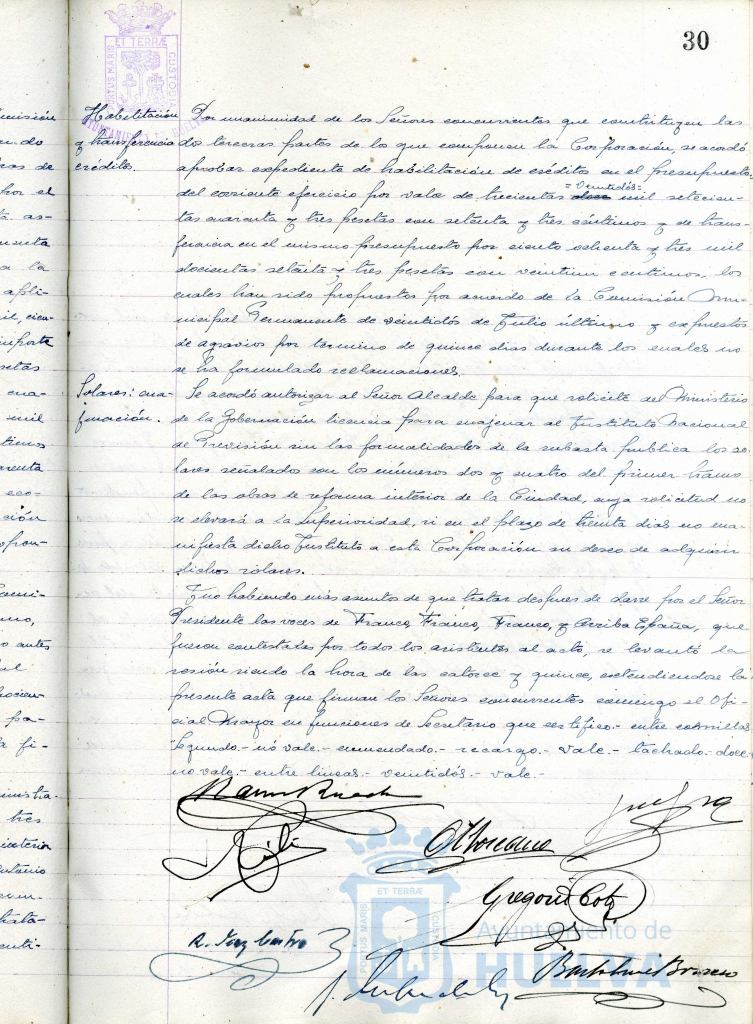 30
PORTUS MARIS ET TERRÆ CUSTODIA
AYUNTAMIENTO HUELVA
Habilitación
y transferencia
crédito.
Por unanimidad de los Señores concurrentes que constituyen las
dos terceras partes de lo que componen la Corporación, se acordó
aprobar expediente de habilitación de crédito en el presupuesto
= veintidós =
del corriente ejercicio por valor de trecientas doce mil setecien-
tas cuarenta y tres pesetas con setenta y tres céntimos y de trans-
ferencia en el mismo presupuesto por ciento ochenta y tres mil
docientas setenta y tres pesetas con veintiun centimos, los
cuales han sido propuestos por acuerdo de la Comisión Mu-
nicipal Permanente de veintidós de Julio último y expuestos
de agravios por termino de quince dias durante los cuales no
se ha formulado reclamaciones.
Solares: ena-
jenación.
Se acordó autorizar al Señor Alcalde para que solicite del Ministerio
de la Gobernación licencia para enajenar al Instituto Nacional
de Previsión sin las formalidades de la subasta publica los so-
lares señalados con los números dos y cuatro del primer tramo
de las obras de reforma interior de la Ciudad, cuya solicitud no
se elevará a la Superioridad, si en el plazo de treinta dias no ma-
nifiesta dicho Instituto a esta Corporación su deseo de adquirir
dichos solares.
Y no habiendo más asuntos de que tratar despues de darse por el Señor
Presidente las voces de Franco, Franco, Franco, y Arriba España, que
fueron contestadas por todos los asistentes al acto, se levantó la
sesión siendo la hora de las catorce y quince, extendiendose la
presente acta que firman los Señores concurrentes conmigo el Ofi-
cial Mayor en funciones de Secretario que certifico.- entre comillas
Segundo.- nó vale.- enmendado.- recargo.- vale.- tachado.- doce.-
no vale.- entre lineas.- veintidós.- vale.-
Gregorio
Ayuntamiento de
HUELVA